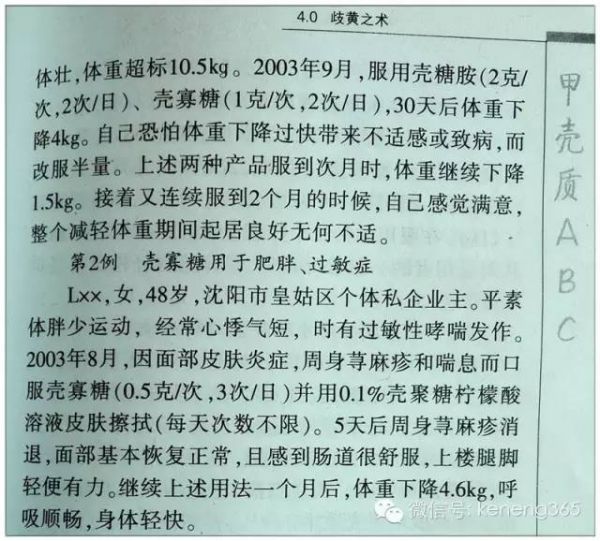 4.0 歧黄之术
体壮,体重超标10.5kg。2003年9月,服用壳糖胺(2克/
次,2次/日)、壳寡糖(1克/次,2次/日),30天后体重下
降4kg。自己恐怕体重下降过快带来不适感或致病,而
改服半量。上述两种产品服到次月时,体重继续下降
1.5kg。接着又连续服到2个月的时候,自己感觉满意,
整个减轻体重期间起居良好无何不适。
第2例 壳寡糖用于肥胖、过敏症
L××,女,48岁,沈阳市皇姑区个体私企业主。平素
体胖少运动,经常心悸气短,时有过敏性哮喘发作。
2003年8月,因面部皮肤炎症,周身荨麻疹和喘息而口
服壳寡糖(0.5克/次,3次/日)并用0.1%壳聚糖柠檬酸
溶液皮肤擦拭(每天次数不限)。5天后周身荨麻疹消
退,面部基本恢复正常,且感到肠道很舒服,上楼腿脚
轻便有力。继续上述用法一个月后,体重下降4.6kg,呼
吸顺畅,身体轻快。
甲壳质ABC
微信号: keneng365